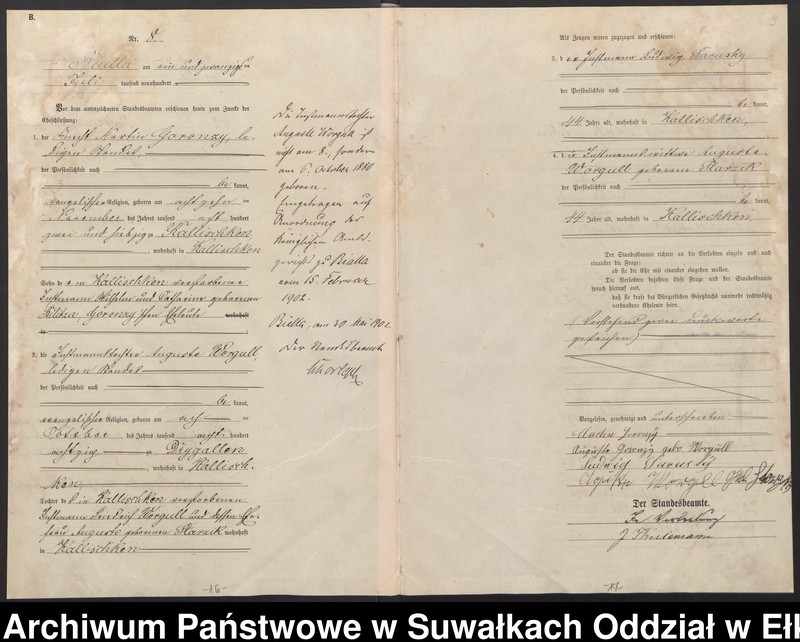 B.
Nr. 8.
Bialla am ein und zwanzigsten
Juli tausend neunhundert
Vor dem unterzeichneten Standesbeamten erschienen heute zum Zwecke der
Eheschließung:
1. der Knecht Martin Goronzy, le-
digen Standes
der Persönlichkeit nach
be kannt,
evangelischer Religion, geboren am achtzehn ten
November des Jahres tausend acht hundert
zwei und siebzig zu Kallischken
, wohnhaft in Kallischken
Sohn des in Kallischken verstorbenen
Instmann und Catharina geborenen
Goronzy'schen Eheleute wohnhaft
in
2. die Instmannstochter Auguste Worgull,
ledigen Standes
der Persönlichkeit nach
be kannt,
evangelischer Religion, geboren am acht ten
October des Jahres tausend acht hundert
achtzig zu Drygallen
, wohnhaft in Kallisch-
ken,
Tochter des in Kallischken verstorbenen
Instmann Friedrich Worgull und dessen Ehe-
frau Auguste geborenen Skarzik wohnhaft
in Kallischken
Die Instmannstochter
Auguste Worgull ist
nicht am 8., sondern
am 6. October 1880
geboren.
Eingetragen auf
Anordnung des
Königlichen Amts-
gerichts zu Bialla
vom 15. Februar
1902.
Bialla, am 30. Mai 1902
Der Standesbeamte
-16-
Als Zeugen waren zugezogen und erschienen:
3. der Instmann Ludwig
der Persönlichkeit nach
be kannt,
44 Jahre alt, wohnhaft in Kallischken,
4. die Instmannswittwe Auguste
Worgull geborene Skarzik
der Persönlichkeit nach
be kannt,
44 Jahre alt, wohnhaft in Kallischken
Der Standesbeamte richtete an die Verlobten einzeln und nach
einander die Frage:
ob sie die Ehe mit einander eingehen wollen.
Die Verlobten bejahten diese Frage und der Standesbeamte
sprach hierauf aus,
daß sie kraft des Bürgerlichen Gesetzbuchs nunmehr rechtmäßig
verbundene Eheleute seien.
(Vorstehend zwei Druckworte
gestrichen)
Vorgelesen, genehmigt und unterschrieben
Martin Goronzy
Auguste Goronzy geb. Worgull
Ludwig
Auguste Worgull geb.
Der Standesbeamte.
In Vertretung
-17-
Archiwum Państwowe w Suwałkach Oddział w Eł